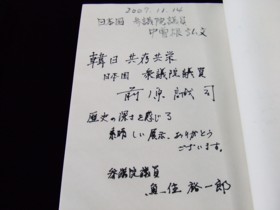 2007.11.14
日本国 参議院議員
中曽根弘文
韓日 共存共栄
日本国 衆議院議員
前原誠司
歴史の深さを感じる
素晴しい展示、ありがとう
ございます。
参議院議員
魚住裕一郎